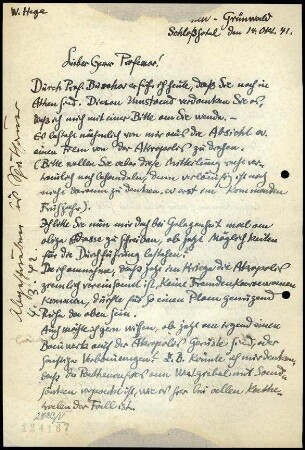 W. Hege
- Grunwald
Schloßhotel den 14. Okt. 41.
Lieber Herr Professor!
Durch Prof. Buschor erfuhr ich heute, daß Sie noch in
Athen sind. Diesem Umstand verdanken Sie es,
daß ich mich mit einer Bitte an Sie wende. –
Es besteht nähmlich von mir aus die Absicht
einen Film von der Akropolis zu drehen.
(Bitte wollen Sie aber diese Mitteilung recht ver-
traulich noch behandeln, denn vorläufig ist noch
nicht daran zu denken, erst im kommenden
Frühjahr).
Ich bitte Sie nun mir doch bei Gelegenheit mal an
obige Adresse zu schreiben, ob jetzt Möglichkeiten
für die Durchführung bestehen.
Da ich annehme, daß jetzt im Kriege die Akropolis
ziemlich vereinsamt ist, keine Fremdenkarawanen
kommen, dürfte für so einen Plan genügend
Ruhe da oben sein.
Auch möchte ich gern wissen, ob jetzt an irgend einem
Bauwerk auf der Akropolis Gerüste sind, oder
sonstige Verbauungen? z. B. könnte ich mir denken
daß die Parthenonfries am Westgiebel mit Sand-
säcken verpackt ist, wie es hier bei allen Kathe-
dralen der Fall ist.
4. 3. 42.
224187